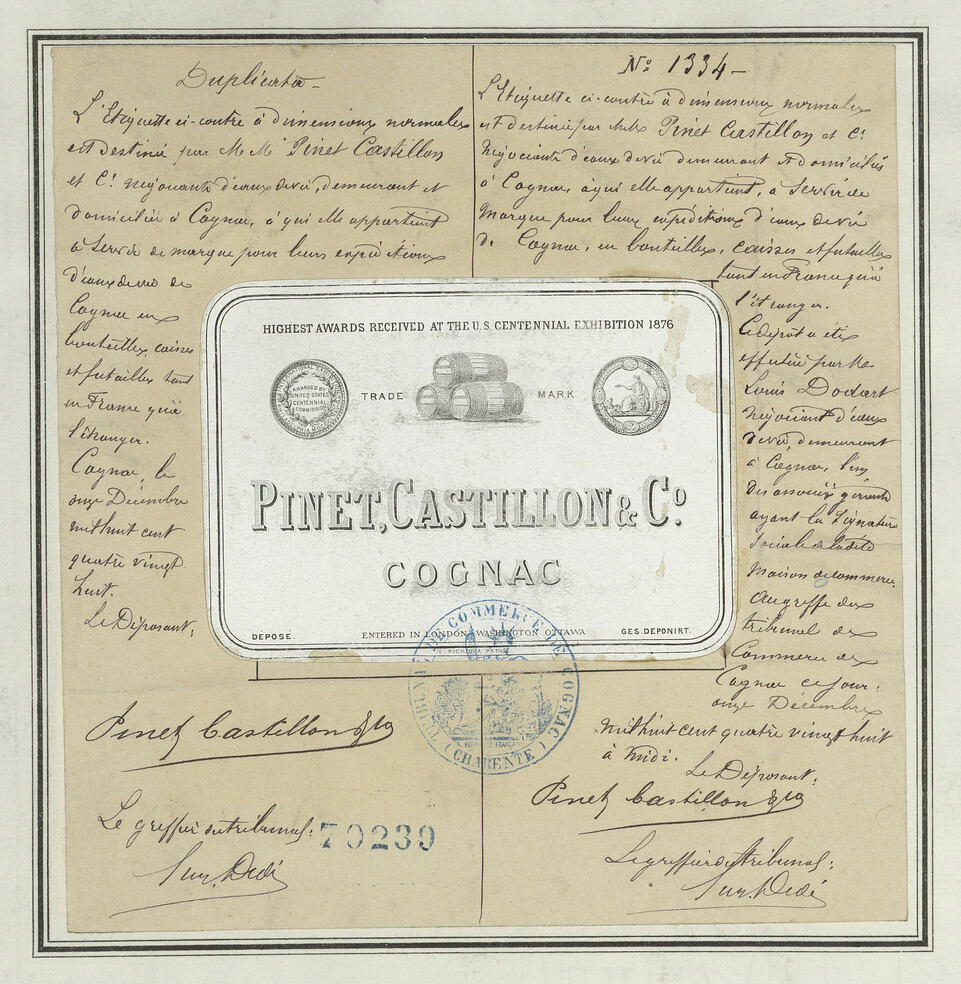 Duplicata
L'Etiquette ci-contre à dimensions normales
est destinée par MM Pinet Castillon
et Cie négociants d'eaux de vie, demeurant et
domiciliés à Cognac, à qui elle appartient
à servir de marque pour leurs expéditions
d'eaux de vie de
Cognac en
bouteilles, caisses
et futailles tant
en France qu'à
l'étranger.
Cognac, le
onze Décembre
mil huit cent
quatre vingt
huit.
Le Déposant:
Pinet Castillon & Co
Le greffier du tribunal:
70239
No 1334
L'Etiquette ci-contre à dimensions normales
est destinée par MM Pinet Castillon et Cie
Négociants d'eaux de vie demeurant et domiciliés
à Cognac, à qui elle appartient, à servir de
marque pour leurs expéditions d'eaux de vie
de Cognac, en bouteilles, caisses et futailles
tant en France qu'à
l'étranger.
Ce dépôt a été
effectué par Mr
Louis Dodart
négociant d'eaux
de vie, demeurant
à Cognac, l'un
des associés gérants
ayant la signature
sociale de ladite
maison de commerce,
au greffe du
tribunal de
Commerce de
Cognac ce jour:
onze Décembre
mil huit cent quatre vingt huit
à midi.
Le Déposant:
Pinet Castillon & Co
Le greffier du tribunal:
HIGHEST AWARDS RECEIVED AT THE U.S. CENTENNIAL EXHIBITION 1876
AWARDED BY
UNITED STATES
CENTENNIAL
COMMISSION
TRADE MARK
PINET, CASTILLON & Co
COGNAC
DEPOSE.
ENTERED IN LONDON WASHINGTON OTTAWA
GES. DEPONIRT.
TRIBUNAL DE COMMERCE DE COGNAC
(CHARENTE)